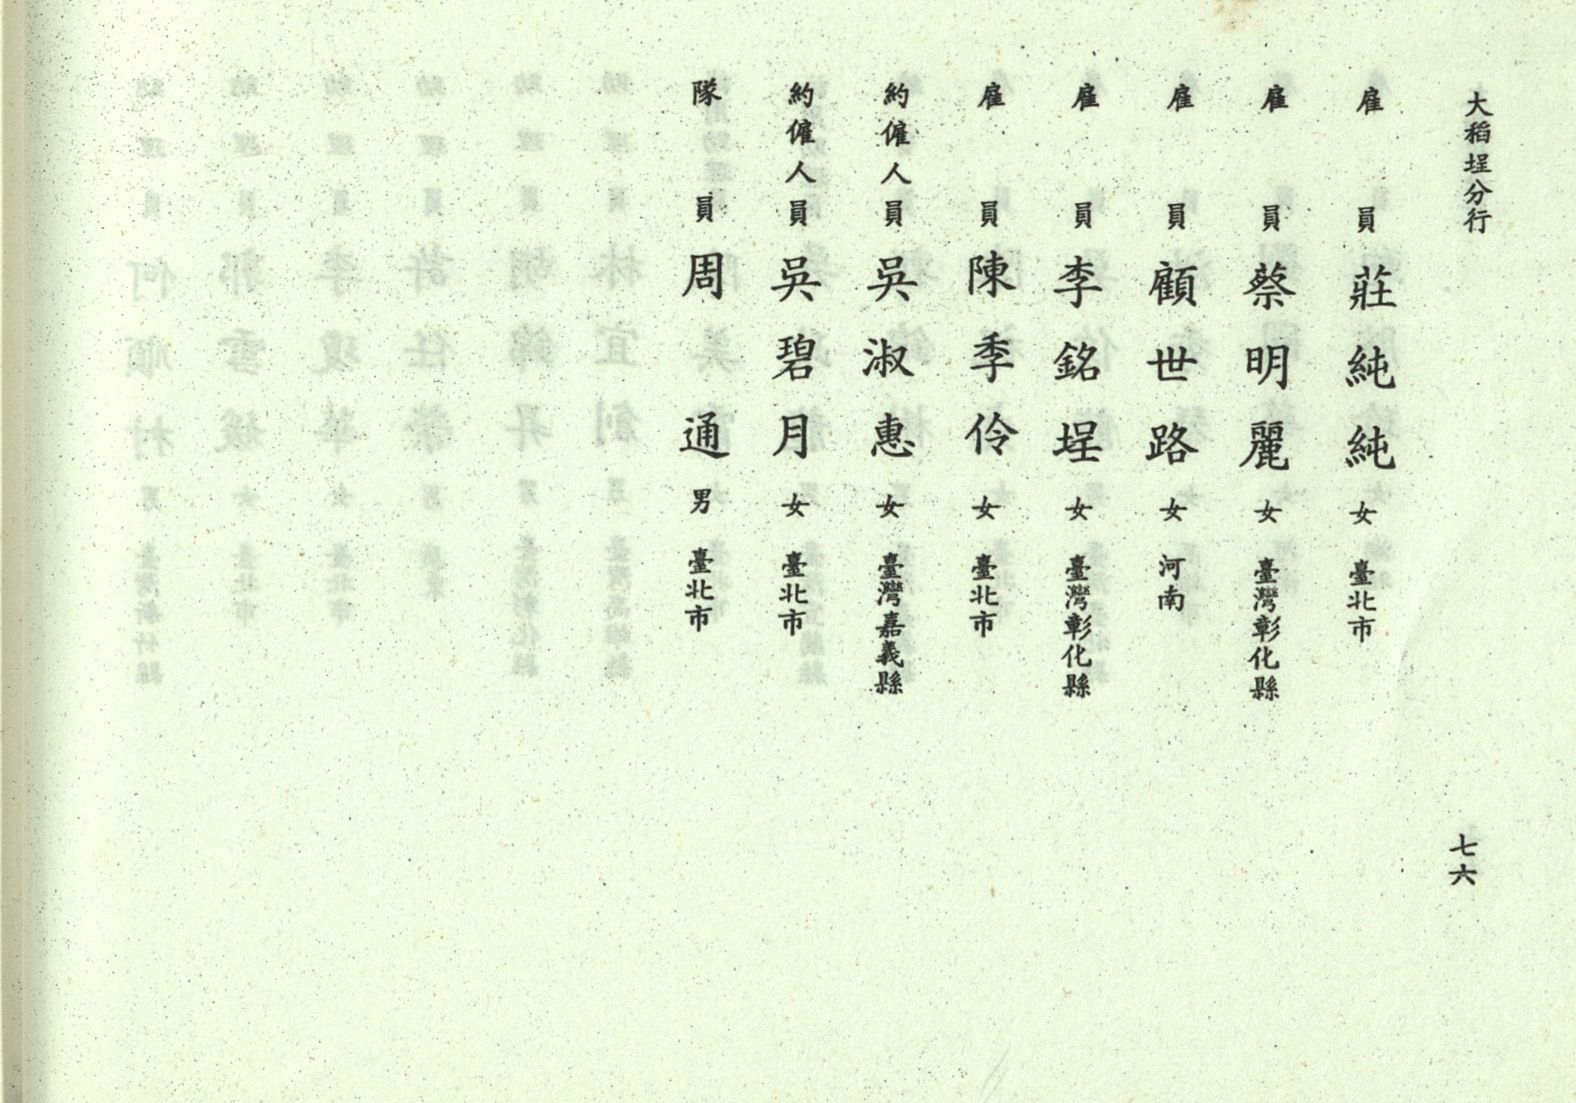 大稻埕分行
雇員 莊純純 女 臺北市
雇員 蔡明麗 女 臺灣彰化縣
雇員 顧世路 女 河南
雇員 李銘埕 女 臺灣彰化縣
雇員 陳季伶 女 臺北市
約僱人員 吳淑惠 女 臺灣嘉義縣
約僱人員 吳碧月 女 臺北市
隊員 周通 男 臺北市
七六